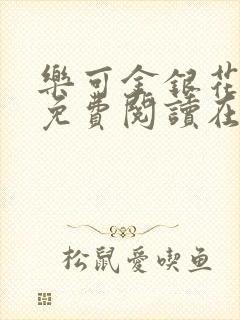 樂可金銀花
免費閱讀在
松鼠愛喫鱼